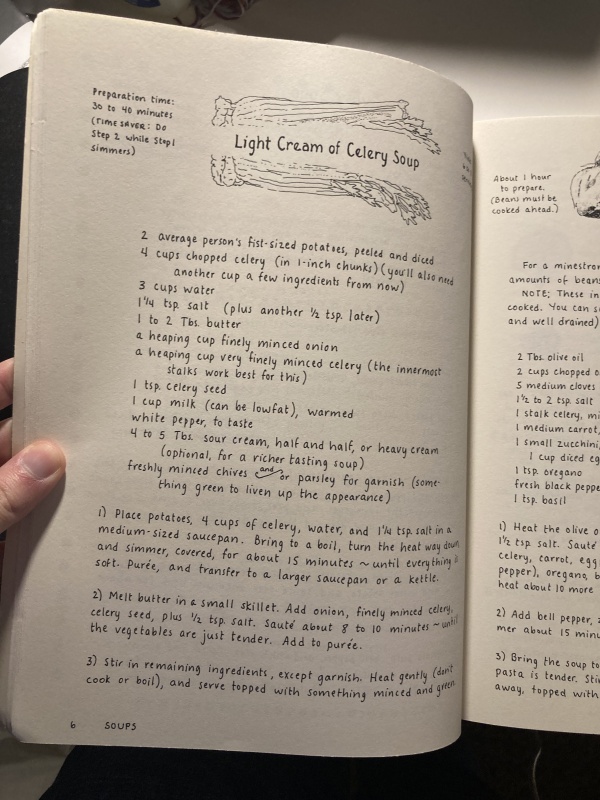 Preparation time:
30 to 40 minutes
(TIME SAVER: Do
Step 2 while Step 1
simmers)
Light Cream of Celery Soup
2 average person's fist-sized potatoes, peeled and diced
4 cups chopped celery (in 1-inch chunks) (you'll also need
another cup a few ingredients from now)
3 cups water
1 1/4 tsp. salt (plus another 1/2 tsp. later)
1 to 2 Tbs. butter
a heaping cup finely minced onion
a heaping cup very finely minced celery (the innermost
stalks work best for this)
1 tsp. celery seed
1 cup milk (can be lowfat), warmed
white pepper, to taste
4 to 5 Tbs. sour cream, half and half, or heavy cream
(optional, for a richer tasting soup)
freshly minced chives and/or parsley for garnish (some-
thing green to liven up the appearance)
1) Place potatoes, 4 cups of celery, water, and 1 1/4 tsp. salt in a
medium-sized saucepan. Bring to a boil, turn the heat way down,
and simmer, covered, for about 15 minutes ~ until everything is
soft. Purée, and transfer to a larger saucepan or a kettle.
2) Melt butter in a small skillet. Add onion, finely minced celery,
celery seed, plus 1/2 tsp. salt. Sauté about 8 to 10 minutes ~ until
the vegetables are just tender. Add to purée.
3) Stir in remaining ingredients, except garnish. Heat gently (don't
cook or boil), and serve topped with something minced and green.
6 SOUPS
About 1 hour
to prepare.
(Beans must be
cooked ahead.)
For a minestron
amounts of beans
NOTE: These in
cooked. You can s
and well drained)
2 Tbs. olive oil
2 cups chopped o
5 medium cloves
1 1/2 to 2 tsp. salt
1 stalk celery, mi
1 medium carrot,
1 small zucchini,
1 cup diced eg
1 tsp. oregano
fresh black peppe
1 tsp. basil
1) Heat the olive o
1 1/2 tsp. salt. Sauté
celery, carrot, egg
pepper), oregano, b
heat about 10 more
2) Add bell pepper, z
mer about 15 minu
3) Bring the soup to
pasta is tender. Sti
away, topped with